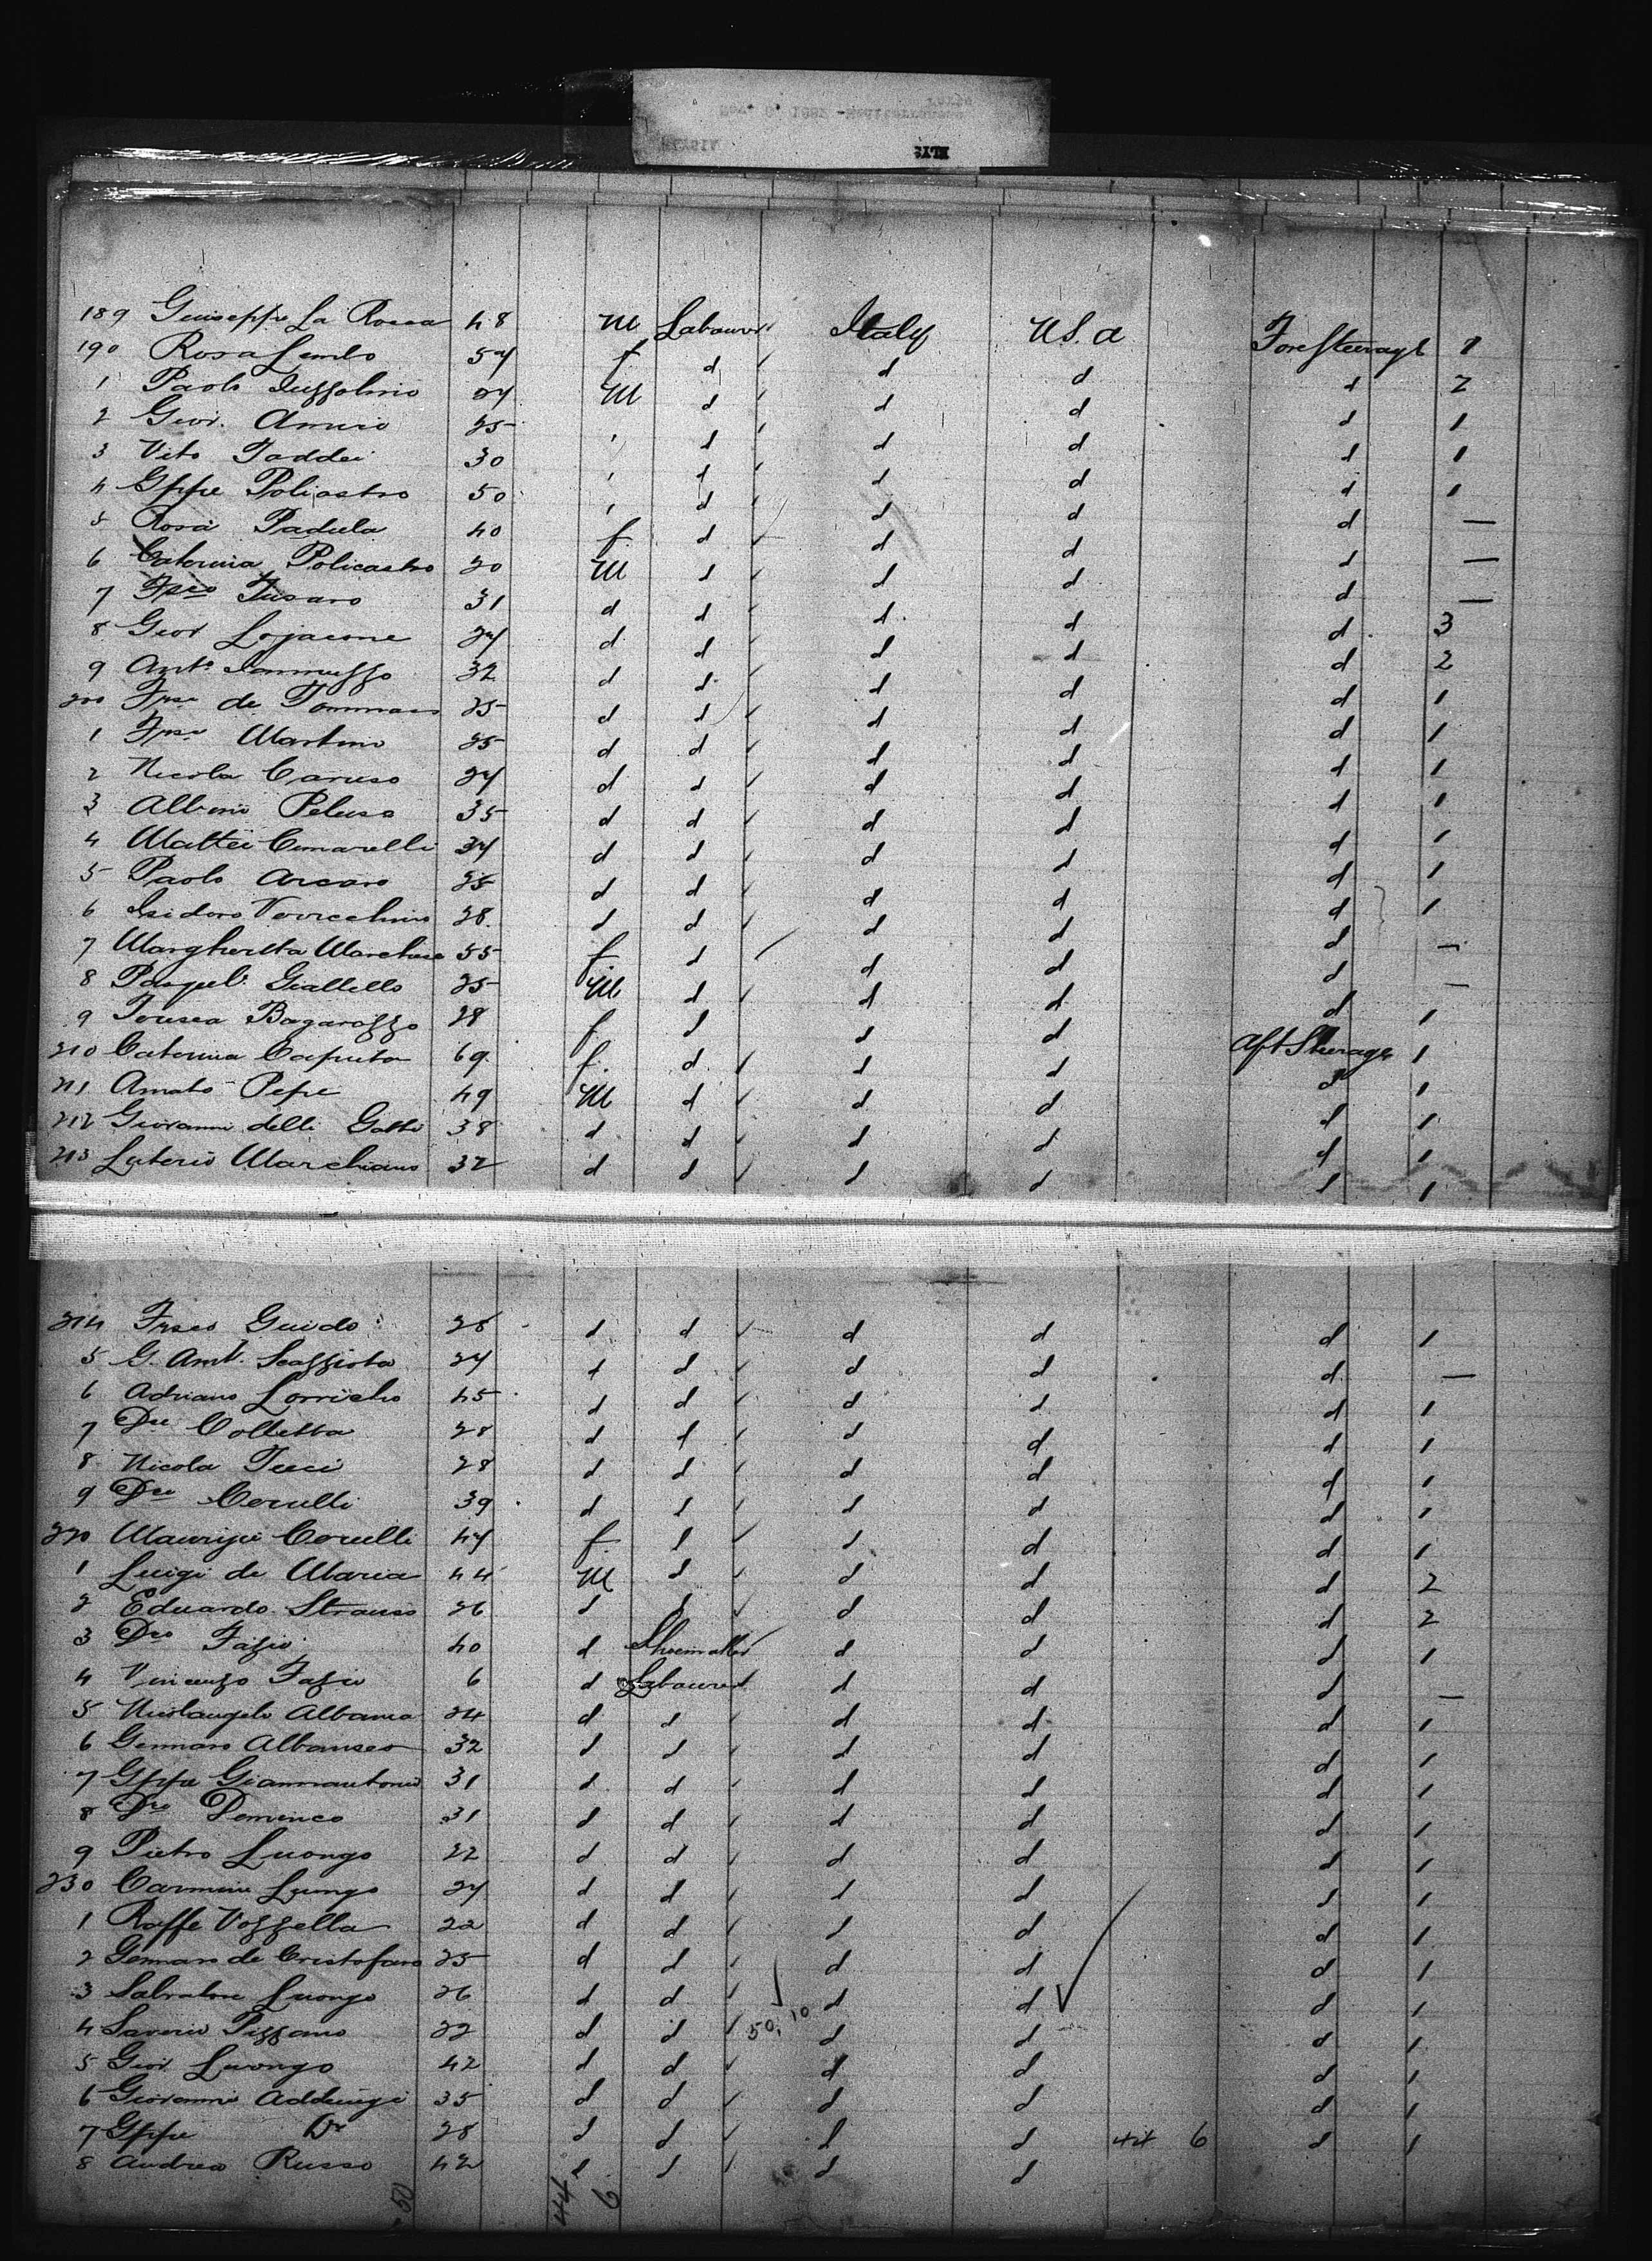 189 Guiseppe La Rocca 48 M Labourer Italy U.S.a Fore Steerage 1
190 Rosa Lembo 54 f d d d d 2
1 Paolo 24 M d d d d 1
2 Giov. Amico 25 " d d d d 1
3 Vito Taddei 30 " d d d d 1
4 Gppe Poliastro 50 " d d d d —
5 Rosa Padula 40 f d d d d —
6 Caterina Policastro 20 M d d d d —
7 Fsco Fusaro 31 d d d d d 3
8 Giov Lojacone 24 d d d d d 2
9 Anto Iannuzzo 32 d d d d d 1
200 de Tommaso 25 d d d d d 1
1 Martino 25 d d d d d 1
2 Nicola Caruso 24 d d d d d 1
3 Peluso 35 d d d d d 1
4 Mattei Cimarelli 34 d d d d d 1
5 Paolo Arcaro 25 d d d d d 1
6 Isidoro Verrecchino 28 d d d d d —
7 Margherita Marchese 55 f d d d d —
8 Pasqule Giallello 25 M d d d d 1
9 Bagarozzo 28 f d d d Aft Steerage 1
210 Caterina Caputo 69 f d d d d 1
211 Amato Pepe 49 M d d d d 1
212 Giovanni delli Gatti 38 d d d d d 1
213 Marchiano 32 d d d d d 1
214 Frsco Guido 28 d d d d d 1
5 G. Ant. Scazziota 24 d d d d d —
6 Adriano 45 d d d d d 1
7 Colletta 28 d d d d d 1
8 Nicola Tucci 28 d d d d d 1
9 Cerulli 39 d d d d d 1
220 Cerulli 44 f d d d d 1
1 Luigi de Maria 44 M d d d d 2
2 Eduardo Strauss 26 d d d d d 2
3 Dco Fazio 40 d Shoemaker d d d 1
4 Vincenzo Fazio 6 d Labourer d d d —
5 Albanese 24 d d d d d 1
6 Gennaro Albanese 32 d d d d d 1
7 Gppe Giannantonio 31 d d d d d 1
8 Dco Domenico 31 d d d d d 1
9 Pietro Luongo 22 d d d d d 1
230 Carmine Luongo 24 d d d d d 1
1 Raffe Vozzella 22 d d d d d 1
2 Gennaro de Cristofaro 25 d d d d d 1
3 Salvatore Luongo 26 d d d d d 1
4 Saverio Pizzano 22 d d 50, 10 d d d 1
5 Giov Luongo 42 d d d d d 1
6 Giovanni 35 d d d d d 1
7 Gppe Do 28 d d d d 44 6 d 1
8 Andrea Russo 42 d d d d
50 44 6